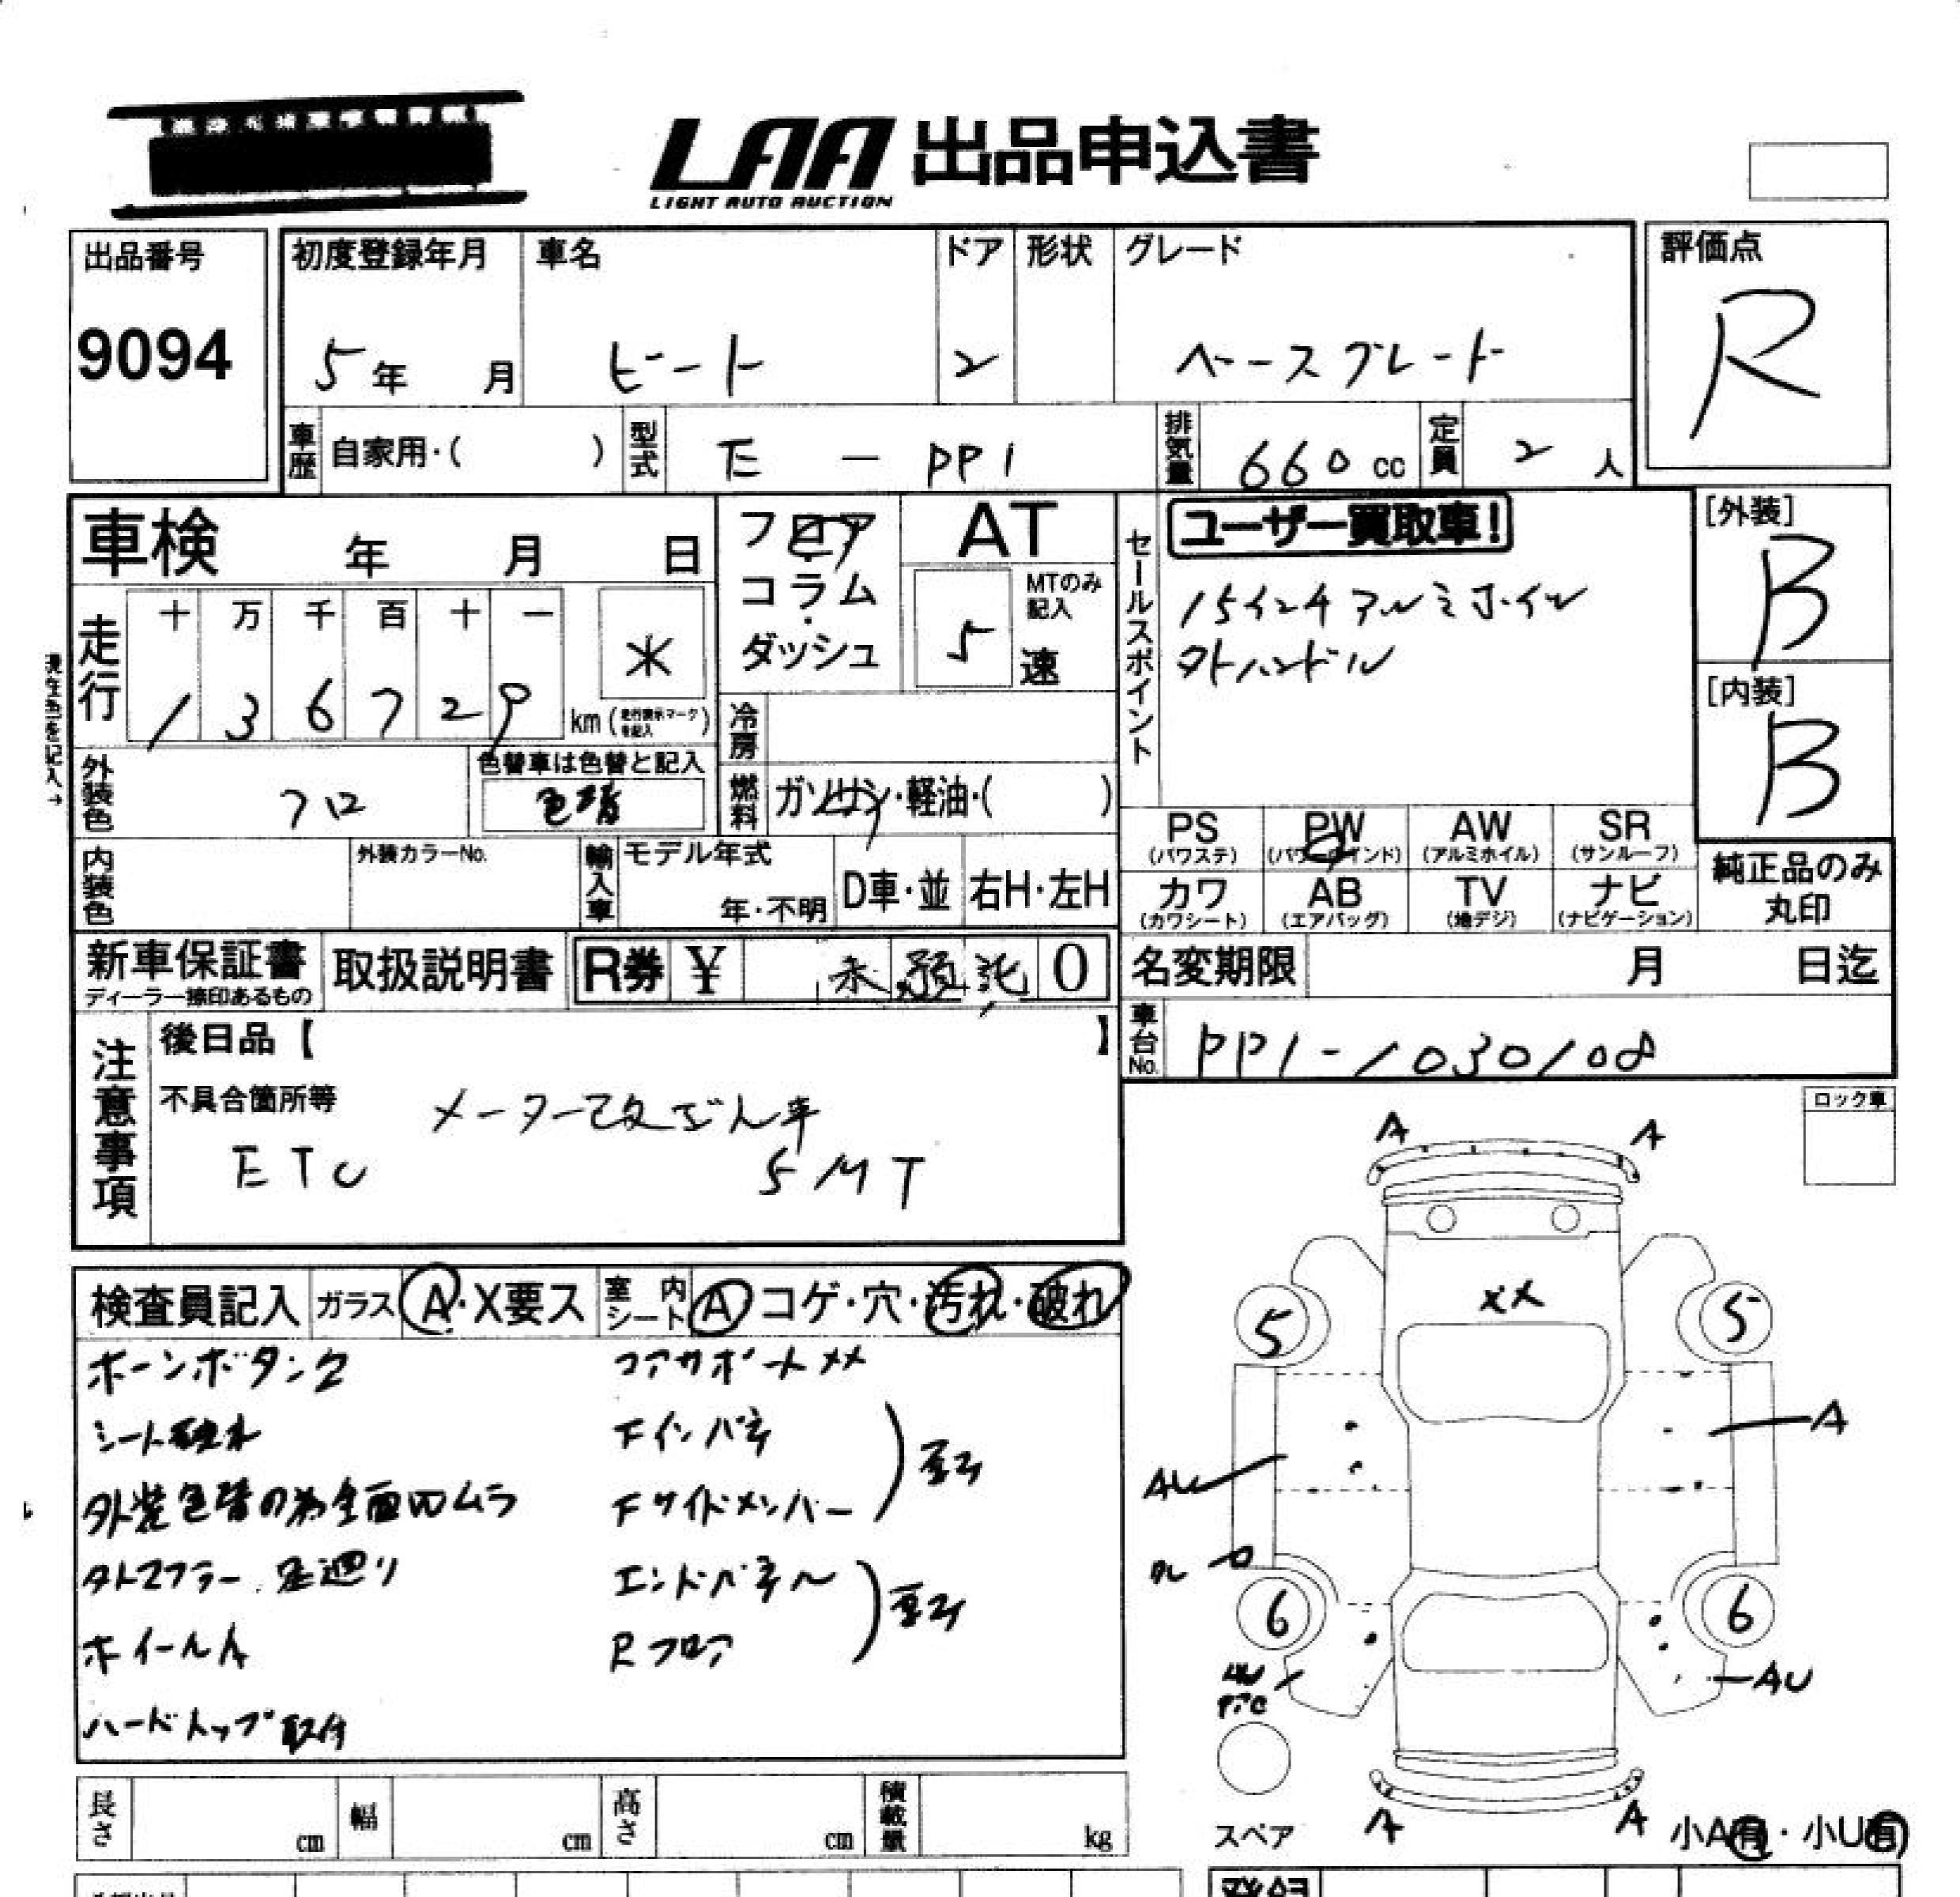 LAA 出品申込書
LIGHT AUTO AUCTION
出品番号 9094
初度登録年月 5年 月
車名 ビート
ドア 2
形状
グレード ベースグレード
評価点 R
車歴 自家用・( )
型式 E - PP1
排気量 660 cc
定員 2 人
車検 年 月 日
フロア
コラム
・
ダッシュ
AT
5 速
MTのみ
記入
セールスポイント
ユーザー買取車!
15インチアルミホイル
外ハンドル
[外装] B
[内装] B
現在色を記入→
走行 十 万 千 百 十 一
1 3 6 7 2 9 km (走行表示マークを記入)
*
冷房
燃料 ガソリン・軽油・( )
外装色 クロ
色替車は色替と記入
色替
内装色
外装カラーNo.
輸入車
モデル年式
年・不明
D車・並
右H・左H
PS (パワステ)
PW (パワーウインド)
AW (アルミホイル)
SR (サンルーフ)
カワ (カワシート)
AB (エアバッグ)
TV (地デジ)
ナビ (ナビゲーション)
純正品のみ
丸印
新車保証書
ディーラー捺印あるもの
取扱説明書
R券 ¥ 未預託 0
名変期限 月 日迄
車台No. PP1-1030108
注意事項
後日品【 】
不具合箇所等 メーター改ざん車
ETC 5MT
ロック車
検査員記入
ガラス A・X要ス
室内シート A コゲ・穴・汚れ・破れ
ホーンボタン欠
シート破れ
外装色替の為全面凹ムラ
外マフラー、足廻り
ホイールA
ハードトップ取付
コアサポートXX
Fインパネ
Fサイドメンバー
エンドパネル
Rフロア
A A
XX
5 5
A
AU
6 6
AU
A A
スペア
小A有・小U有
長さ cm
幅 cm
高さ cm
積載量 kg